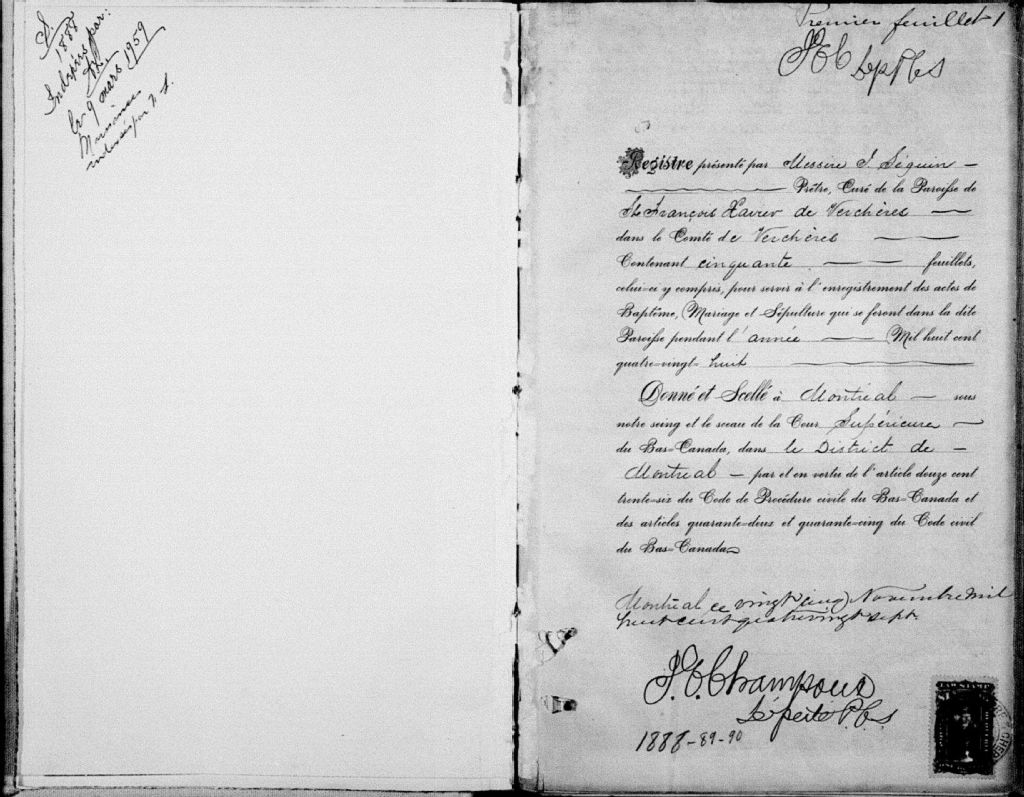 S.
1888
Indexés par:
le 9 mars 1959
Premier feuillet 1
JOC Dep P.C.S
Registre présenté par Messire J. Séguin —
Prêtre, Curé de la Paroisse de
St François Xavier de Verchères —
dans le Comté de Verchères —
Contenant cinquante — — feuillets,
celui-ci y compris, pour servir à l'enregistrement des actes de
Baptême, Mariage et Sépulture qui se feront dans la dite
Paroisse pendant l'année — Mil huit cent
quatre-vingt-huit
Donné et Scellé à Montréal — sous
notre seing et le sceau de la Cour Supérieure —
du Bas-Canada, dans le District de —
Montréal — par et en vertu de l'article douze cent
trente-six du Code de Procédure civile du Bas-Canada et
des articles quarante-deux et quarante-cinq du Code civil
du Bas-Canada
Montréal ce vingt cinq Novembre mil
huit cent quatrevingt sept.
J.O. Champoux
Député P.C.S
1888-89-90